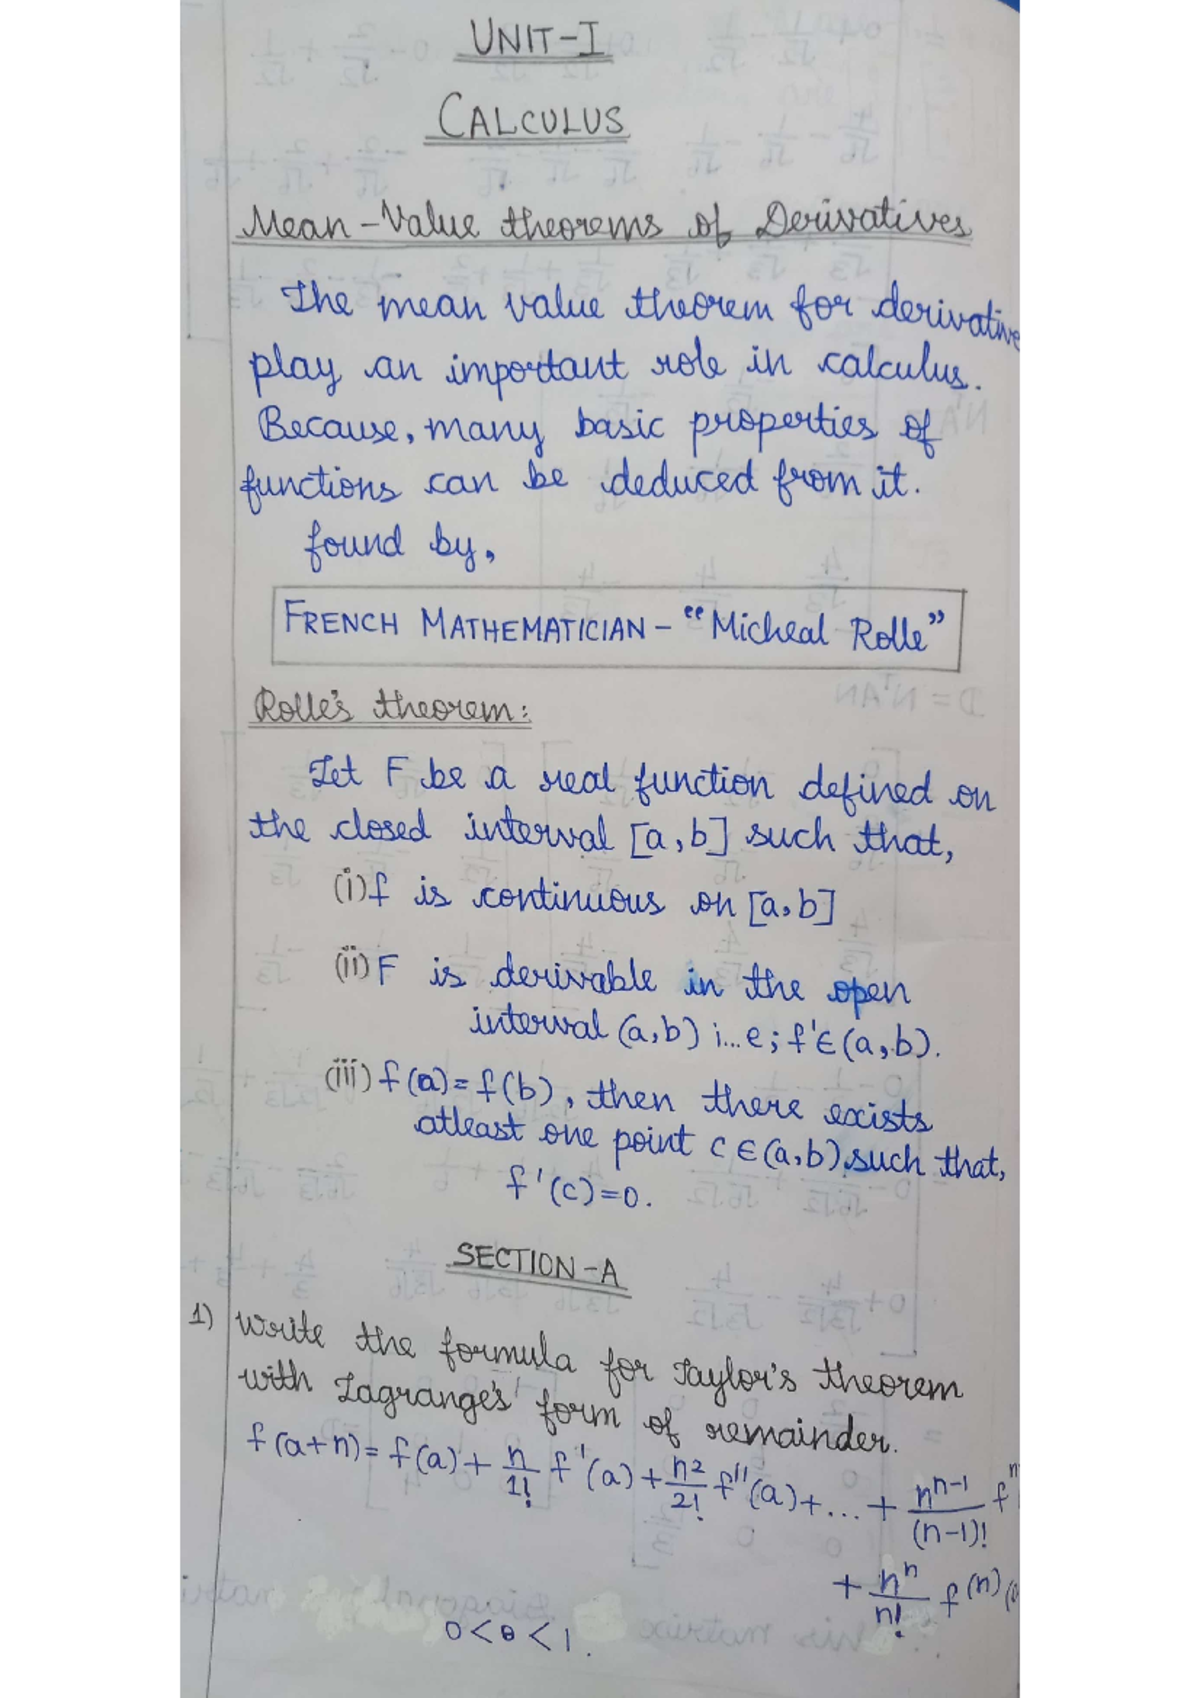 UNIT-I
CALCULUS
Mean-Value theorems of Derivatives
The mean value theorem for derivative
play an important role in calculus.
Because, many basic properties of
functions can be deduced from it.
found by,
FRENCH MATHEMATICIAN - "Micheal Rolle"
Rolle's theorem:
Let F be a real function defined on
the closed interval [a,b] such that,
(i) f is continuous on [a,b]
(ii) F is derivable in the open
interval (a,b) i...e; f'∈(a,b).
(iii) f(a)=f(b), then there exists
atleast one point c∈(a,b), such that,
f'(c)=0.
SECTION-A
1) Write the formula for Taylor's theorem
with Lagrange's form of remainder.
f(a+n)= f(a)+ n/1! f'(a)+ n²/2! f''(a)+...+ nⁿ⁻¹/(n-1)! fⁿ
+ nⁿ/n! f⁽ⁿ⁾(
0<θ<1.